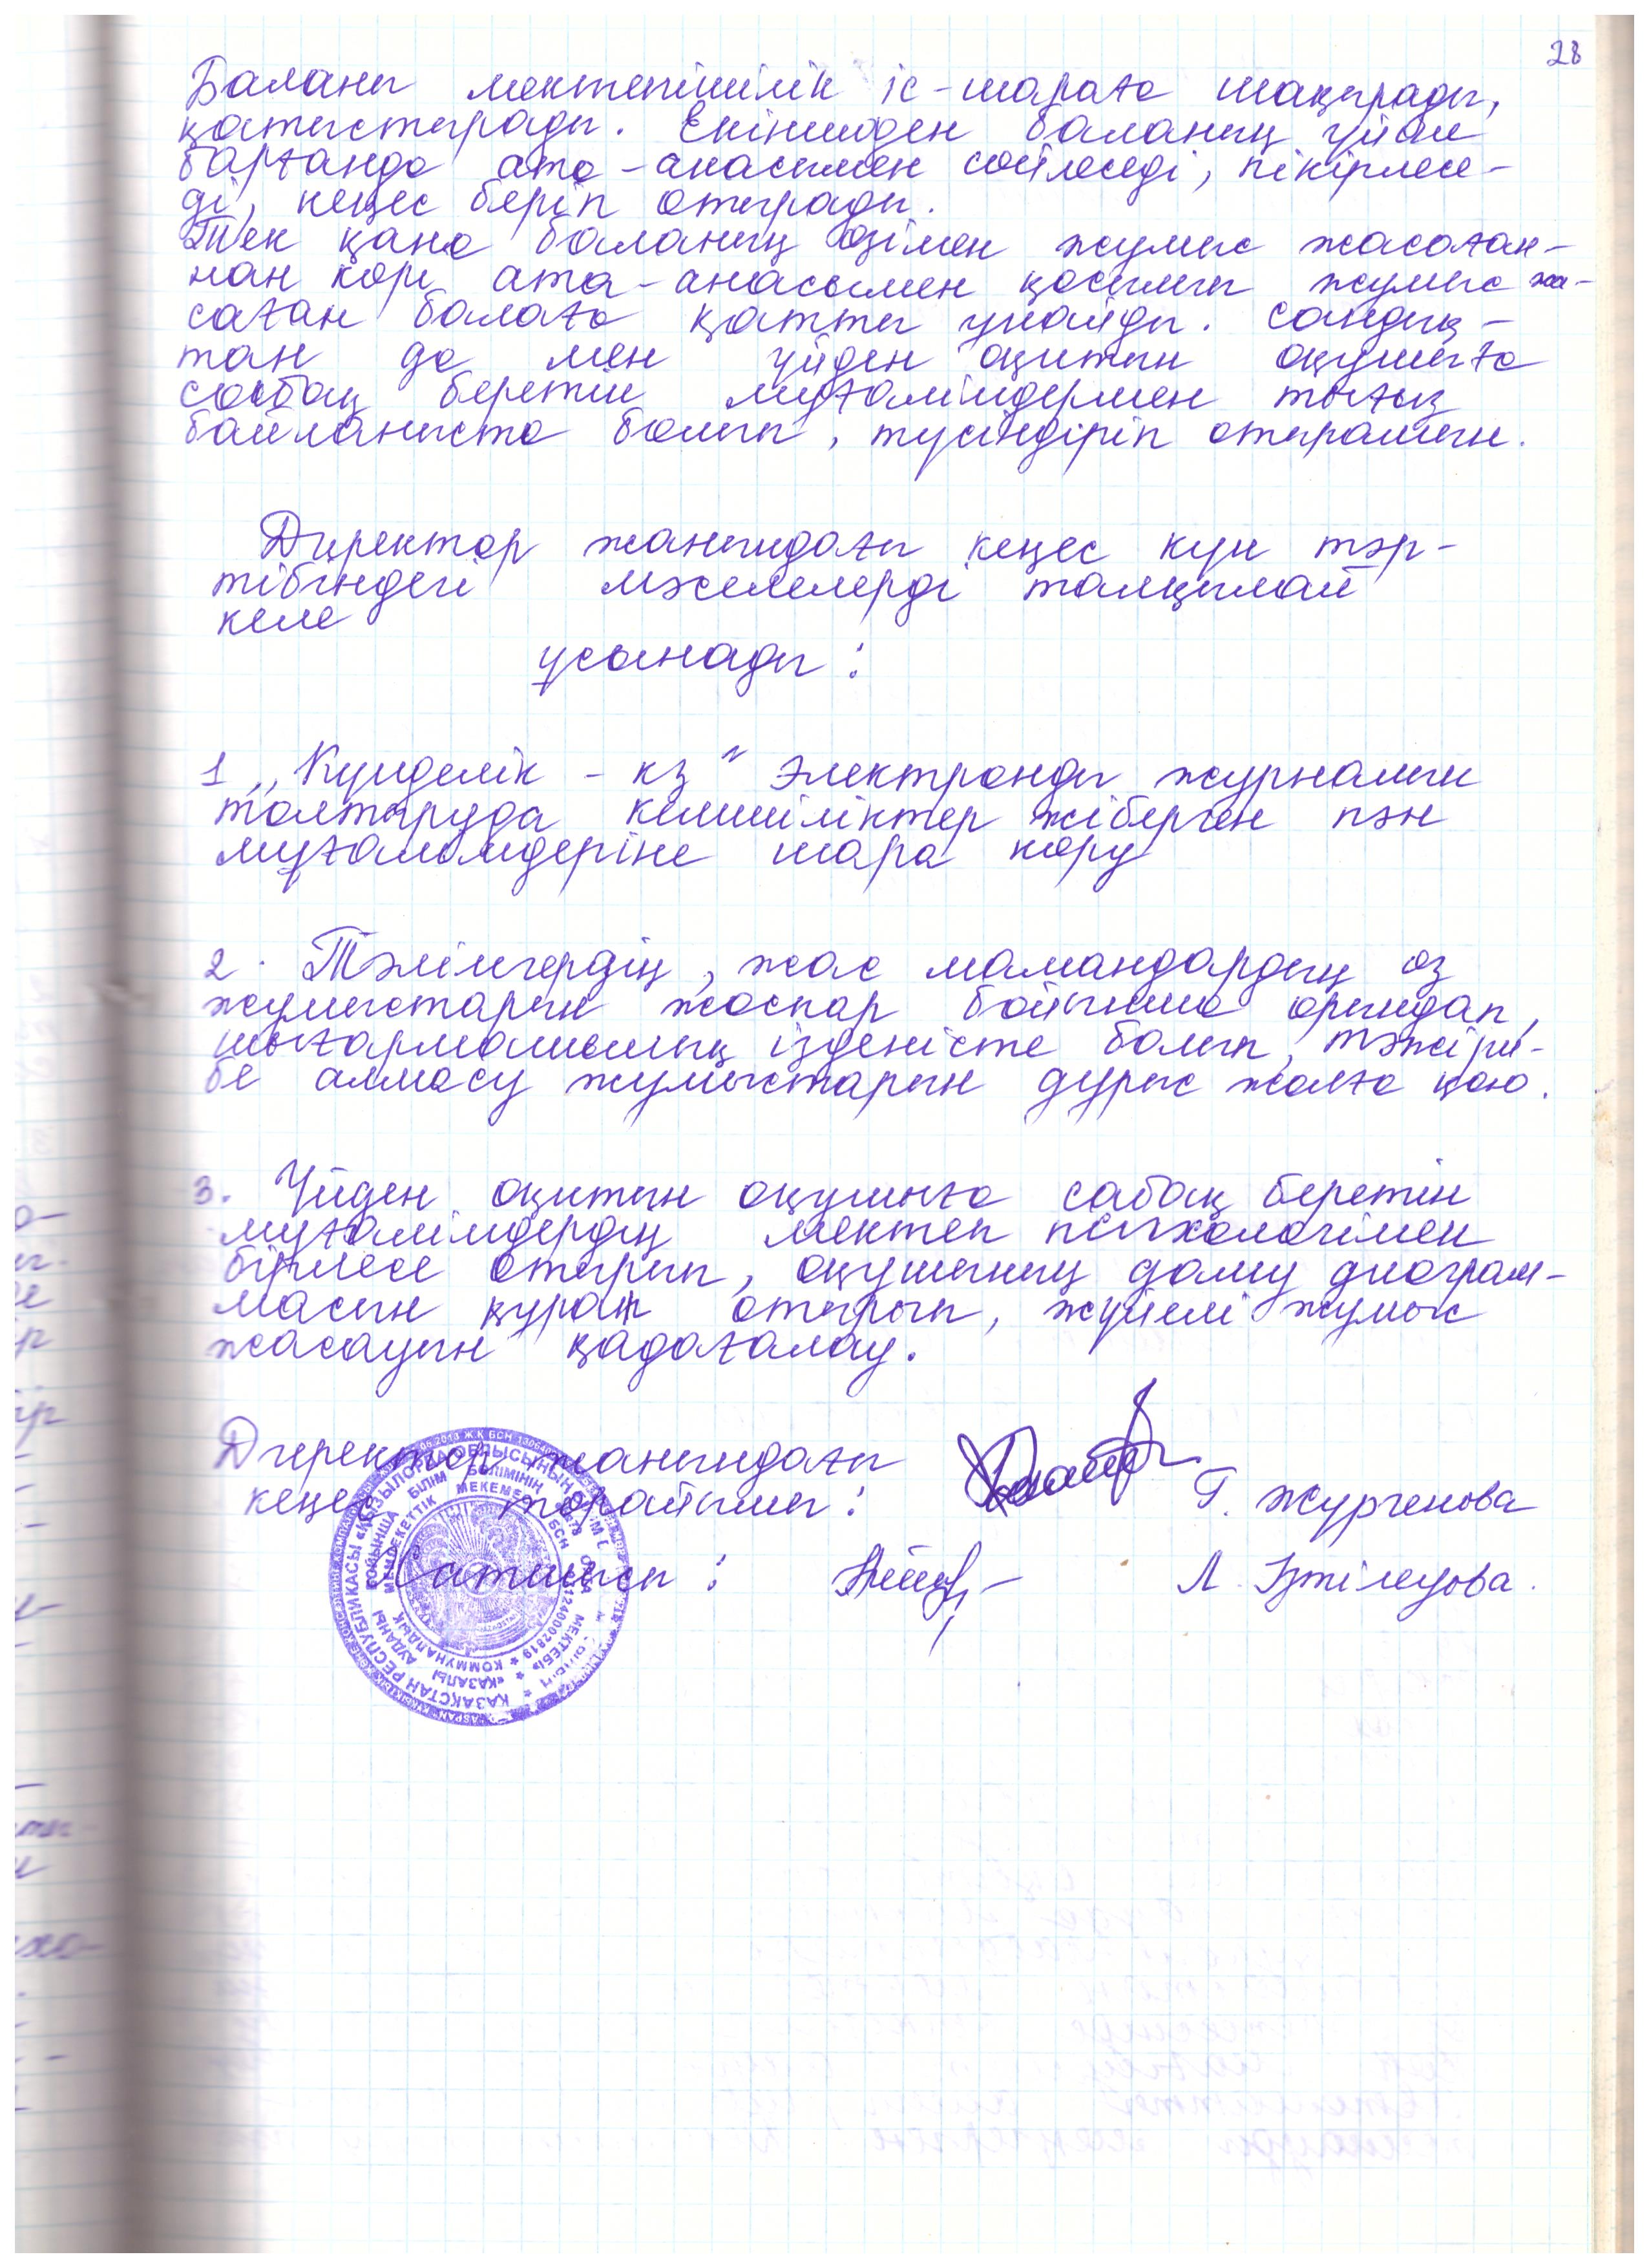 28
Баланы мектепішілік іс-шараға шақырады,
қатыстырады. Екіншіден баланың үйіне
барғанда ата-анасымен сөйлеседі, пікірлесе-
ді, кеңес беріп отырады.
Тек қана баланың өзімен жұмыс жасаған-
нан көрі ата-анасымен қосылып жұмыс жа-
саған балаға қатты ұнайды. Сондық-
тан да мен үйден оқитын оқушыға
сабақ беретін мұғалімдермен тығыз
байланыста болып, түсіндіріп отырамын.
Директор жанындағы кеңес күн тәр-
тібіндегі мәселелерді талқылай
келе
ұсынады:
1 „Күнделік - кз" электронды журналын
толтыруда кемшіліктер жіберген пән
мұғалімдеріне шара көру
2. Тәлімгердің, жас мамандардың өз
жұмыстарын жоспар бойынша орындап,
шығармашылық ізденісте болып, тәжіри-
бе алмасу жұмыстарын дұрыс жолға қою.
3. Үйден оқитын оқушыға сабақ беретін
мұғалімдердің мектеп психологімен
бірлесе отырып, оқушының даму диаграм-
масын құрап отырып, жүйелі жұмыс
жасауын қадағалау.
Директор жанындағы
кеңес төрайымы: Г. Жургенова
Хатшысы: Л. Ізтілеуова.
ҚАЗАҚСТАН РЕСПУБЛИКАСЫ «ҚЫЗЫЛОРДА ОБЛЫСЫНЫҢ
«ҚАЗАЛЫ АУДАНЫ БОЙЫНША БІЛІМ БӨЛІМІНІҢ
МЕКТЕБІ» КОММУНАЛДЫҚ МЕМЛЕКЕТТІК МЕКЕМЕ